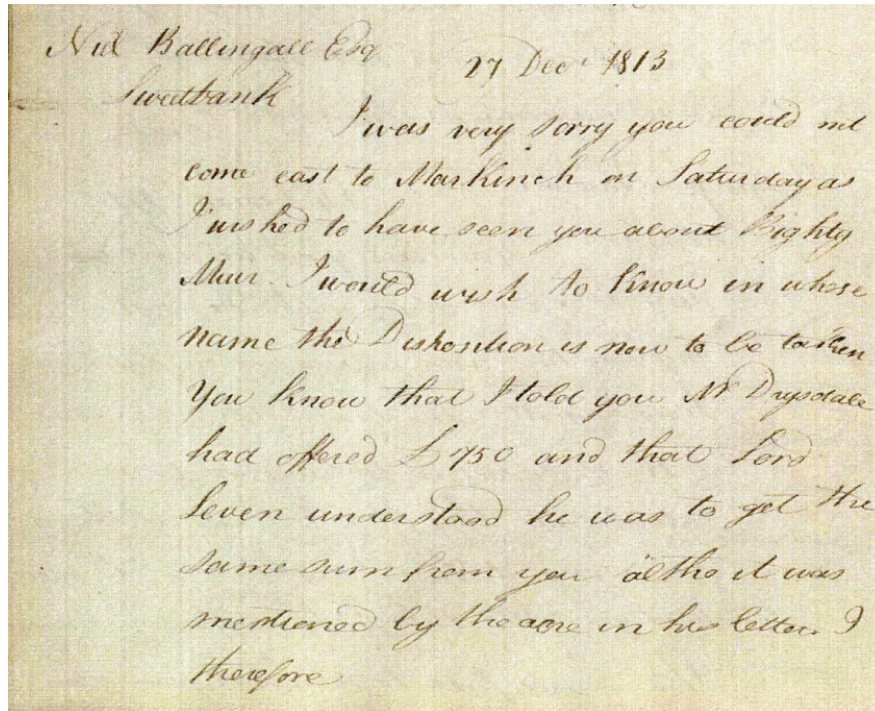 Neil Ballingall Esq
27 Decr 1813
Sweetbank
I was very sorry you could not
come east to Markinch on Saturday as
I wished to have seen you about Bighty
Muir. I would wish to know in whose
name the Disposition is now to be taken
You know that I told you Mr Drysdale
had offered £750 and that Lord
Leven understood he was to get the
same sum from you altho it was
mentioned by the acre in his letter. I
therefore